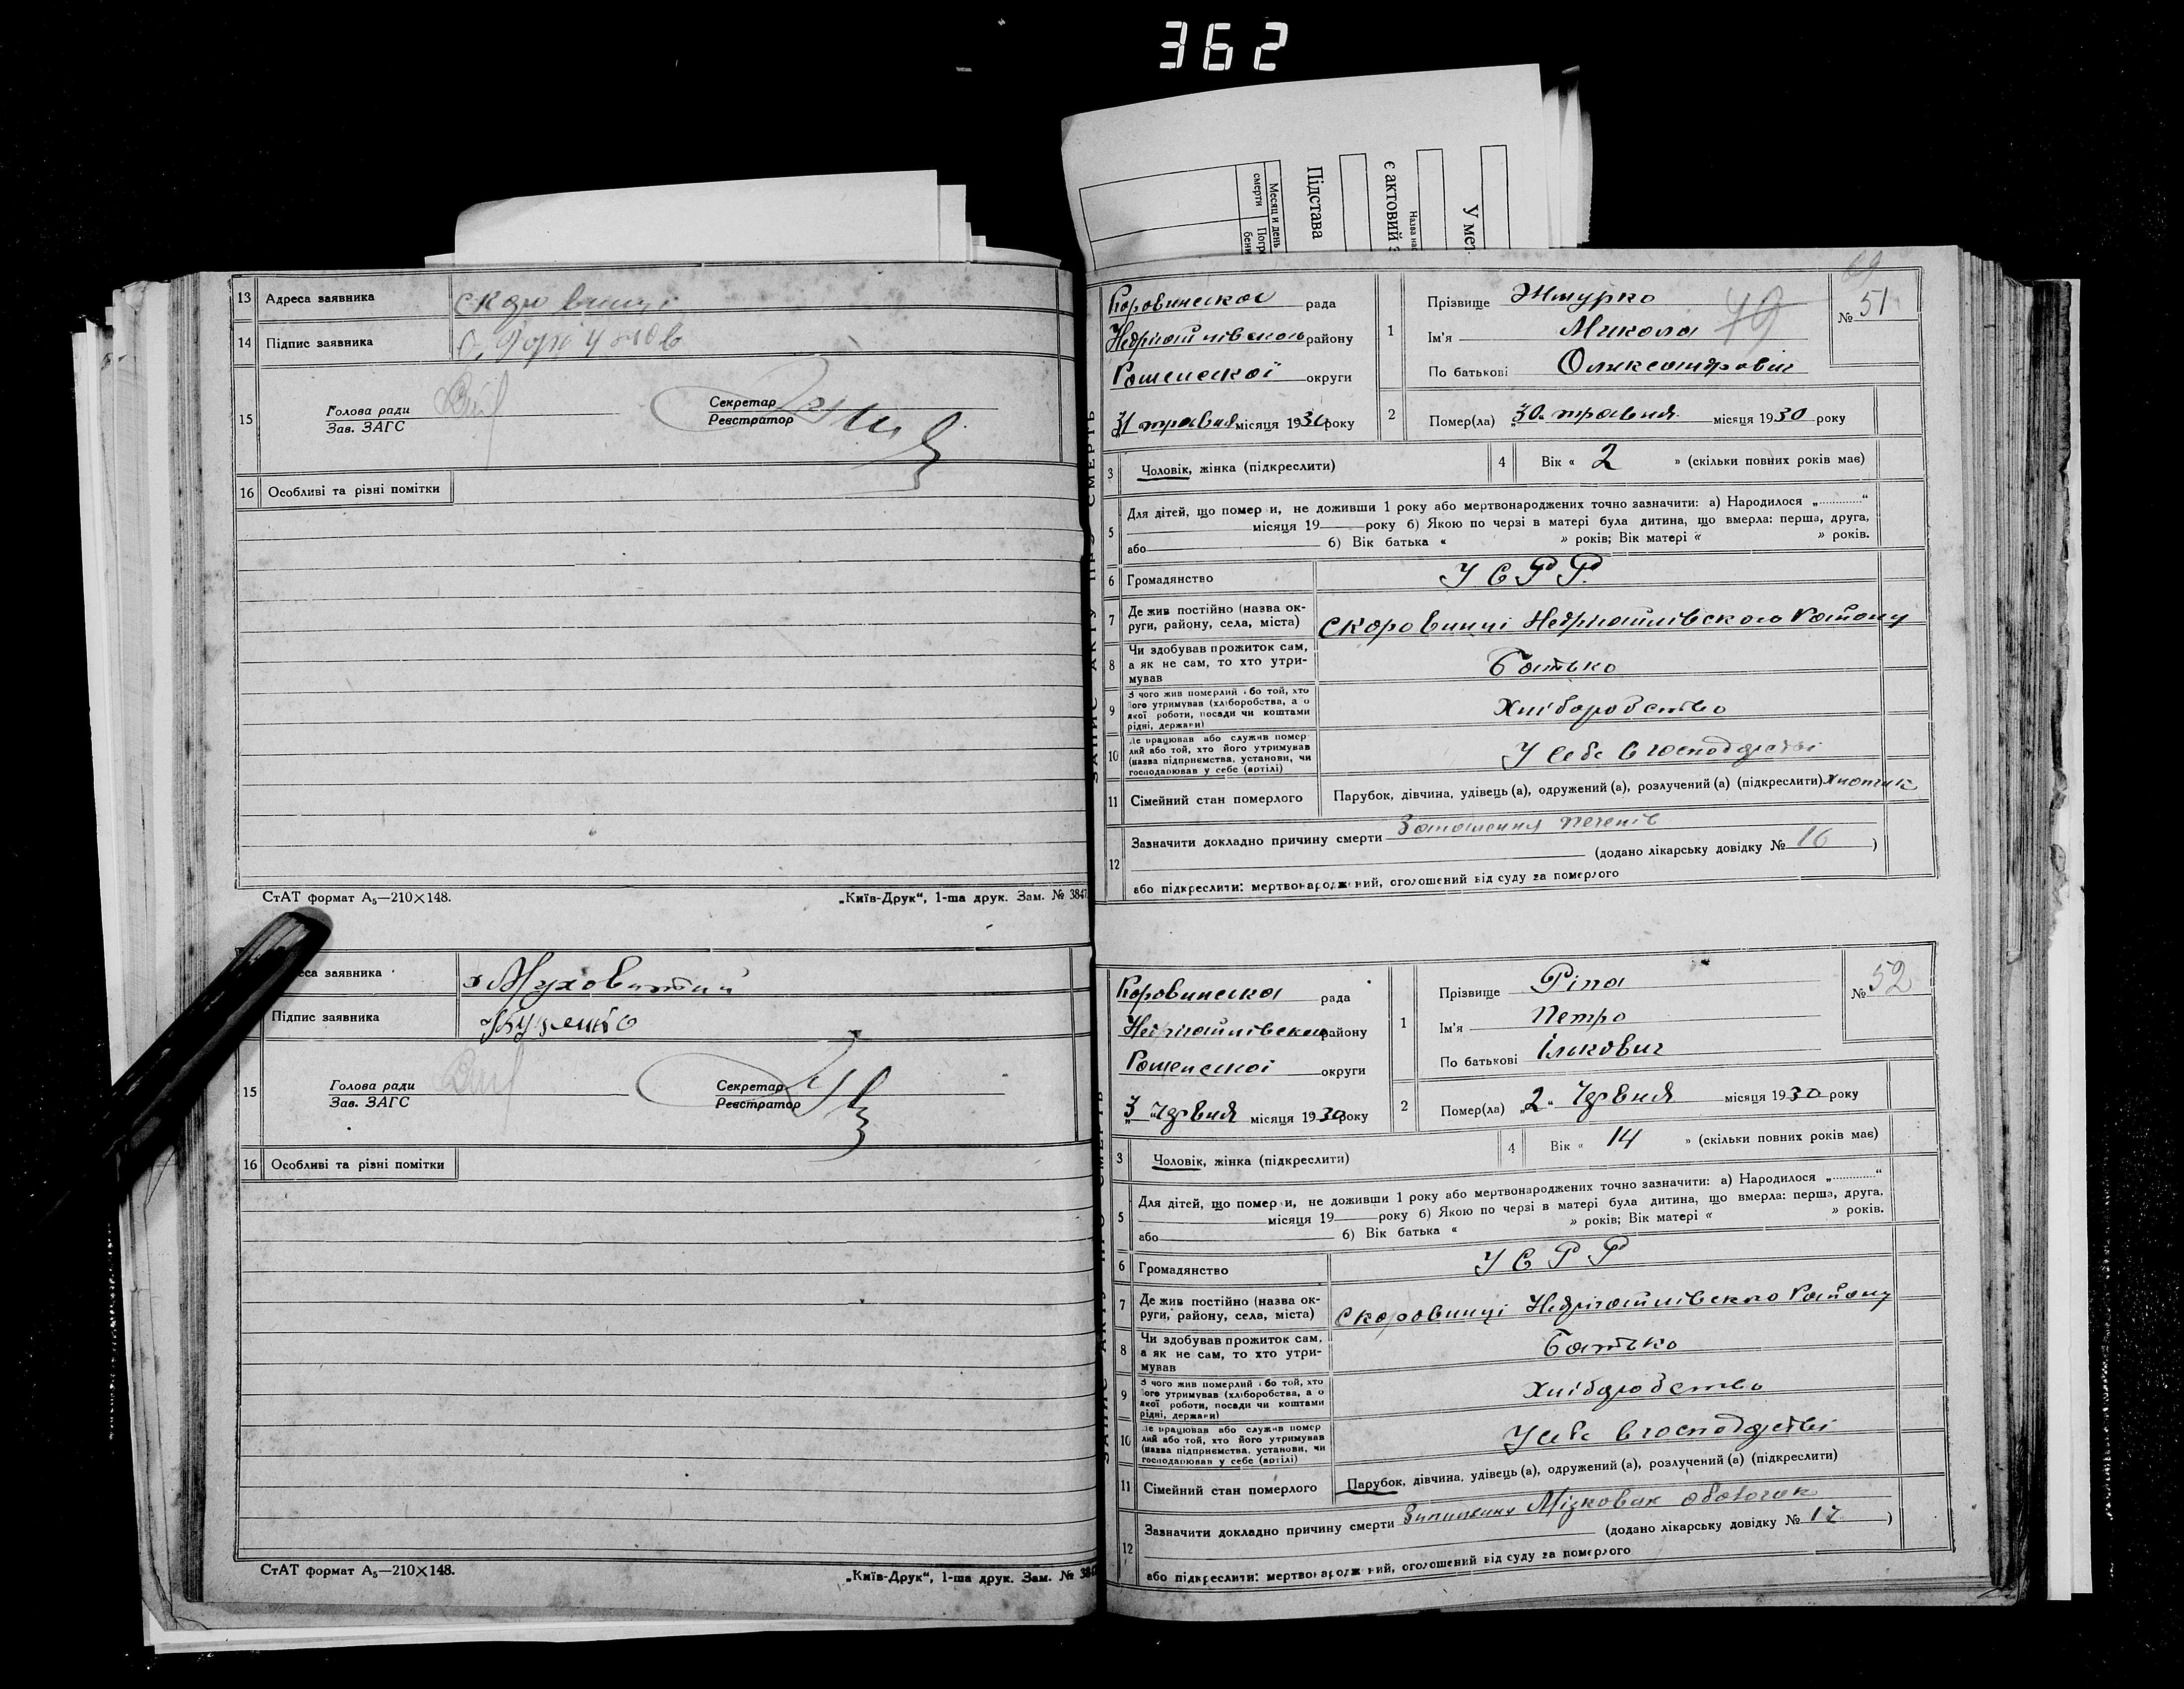 362
Місяц и день
смерти
Погр
бени
Підстава
є актовий з
Назва нас
У мет
13 Адреса заявника
с Коровинці
14 Підпис заявника
15 Голова ради
Зав. ЗАГС
Секретар
Реєстратор
16 Особливі та різні помітки
СтАТ формат А₅—210×148.
„Київ-Друк“, 1-ша друк. Зам. № 3847
еса заявника
х Муховатий
Підпис заявника
15 Голова ради
Зав. ЗАГС
Секретар
Реєстратор
16 Особливі та різні помітки
СтАТ формат А₅—210×148.
„Київ-Друк“, 1-ша друк. Зам. № 384
ЗАПИС АКТУ ПРО СМЕРТЬ
69
Коровинської рада
Недригайлівського району
Роменської округи
„31 травня місяця 1930 року
1 Прізвище Жмурко
Ім'я Микола
79
По батькові Олександрович
№ 51
2 Помер(ла) „30“ травня місяця 1930 року
3 Чоловік, жінка (підкреслити)
4 Вік « 2 » (скільки повних років має)
5 Для дітей, що помер и, не доживши 1 року або мертвонароджених точно зазначити: а) Народилося „............“
місяця 19 року б) Якою по черзі в матері була дитина, що вмерла: перша, друга,
або 6) Вік батька « » років; Вік матері « » років.
6 Громадянство УСРР.
7 Де жив постійно (назва ок-
руги, району, села, міста)
с Коровинці Недригайлівського Району
8 Чи здобував прожиток сам,
а як не сам, то хто утри-
мував
Батько
9 З чого жив померлий або той, хто
його утримував (хліборобства, а о
якої роботи, посади чи коштами
рідні, держави)
Хліборобство
10 Де працював або служив помер
лий або той, хто його утримував
(назва підприємства, установи, чи
господарював у себе (артілі)
У себе в господарстві
11 Сімейний стан померлого
Парубок, дівчина, удівець (а), одружений (а), розлучений (а) (підкреслити) хлопчик
12 Зазначити докладно причину смерти Запалення
(додано лікарську довідку № 16 )
або підкреслити: мертвонароджений, оголошений від суду за померлого
ЗАПИС АКТУ ПРО СМЕРТЬ
Коровинська рада
Недригайлівського району
Роменської округи
„3“ Червня місяця 1930 року
1 Прізвище Ріпа
Ім'я Петро
По батькові Ількович
№ 52
2 Помер(ла) „2“ Червня місяця 1930 року
3 Чоловік, жінка (підкреслити)
4 Вік « 14 » (скільки повних років має)
5 Для дітей, що помер и, не доживши 1 року або мертвонароджених точно зазначити: а) Народилося „............“
місяця 19 року б) Якою по черзі в матері була дитина, що вмерла: перша, друга,
або 6) Вік батька « » років; Вік матері « » років.
6 Громадянство УСРР
7 Де жив постійно (назва ок-
руги, району, села, міста)
с Коровинці Недригайлівського Району
8 Чи здобував прожиток сам,
а як не сам, то хто утри-
мував
Батько
9 З чого жив померлий або той, хто
його утримував (хліборобства, а о
якої роботи, посади чи коштами
рідні, держави)
Хліборобство
10 Де працював або служив помер
лий або той, хто його утримував
(назва підприємства, установи, чи
господарював у себе (артілі)
У себе в господарстві
11 Сімейний стан померлого
Парубок, дівчина, удівець (а), одружений (а), розлучений (а) (підкреслити)
12 Зазначити докладно причину смерти Запалення Мізкових оболочок
(додано лікарську довідку № 17 )
або підкреслити: мертвонароджений, оголошений від суду за померлого